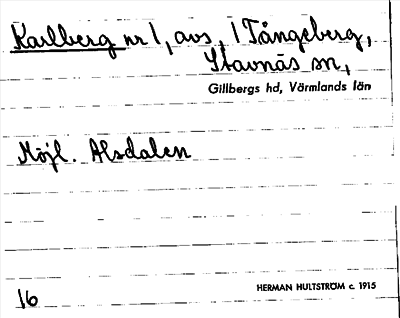 Karlberg nr 1, avs. 1 Tångeberg,
Stavnäs sn,
Gillbergs hd, Värmlands län
Möjl. Alsdalen
16
HERMAN HULTSTRÖM c. 1915